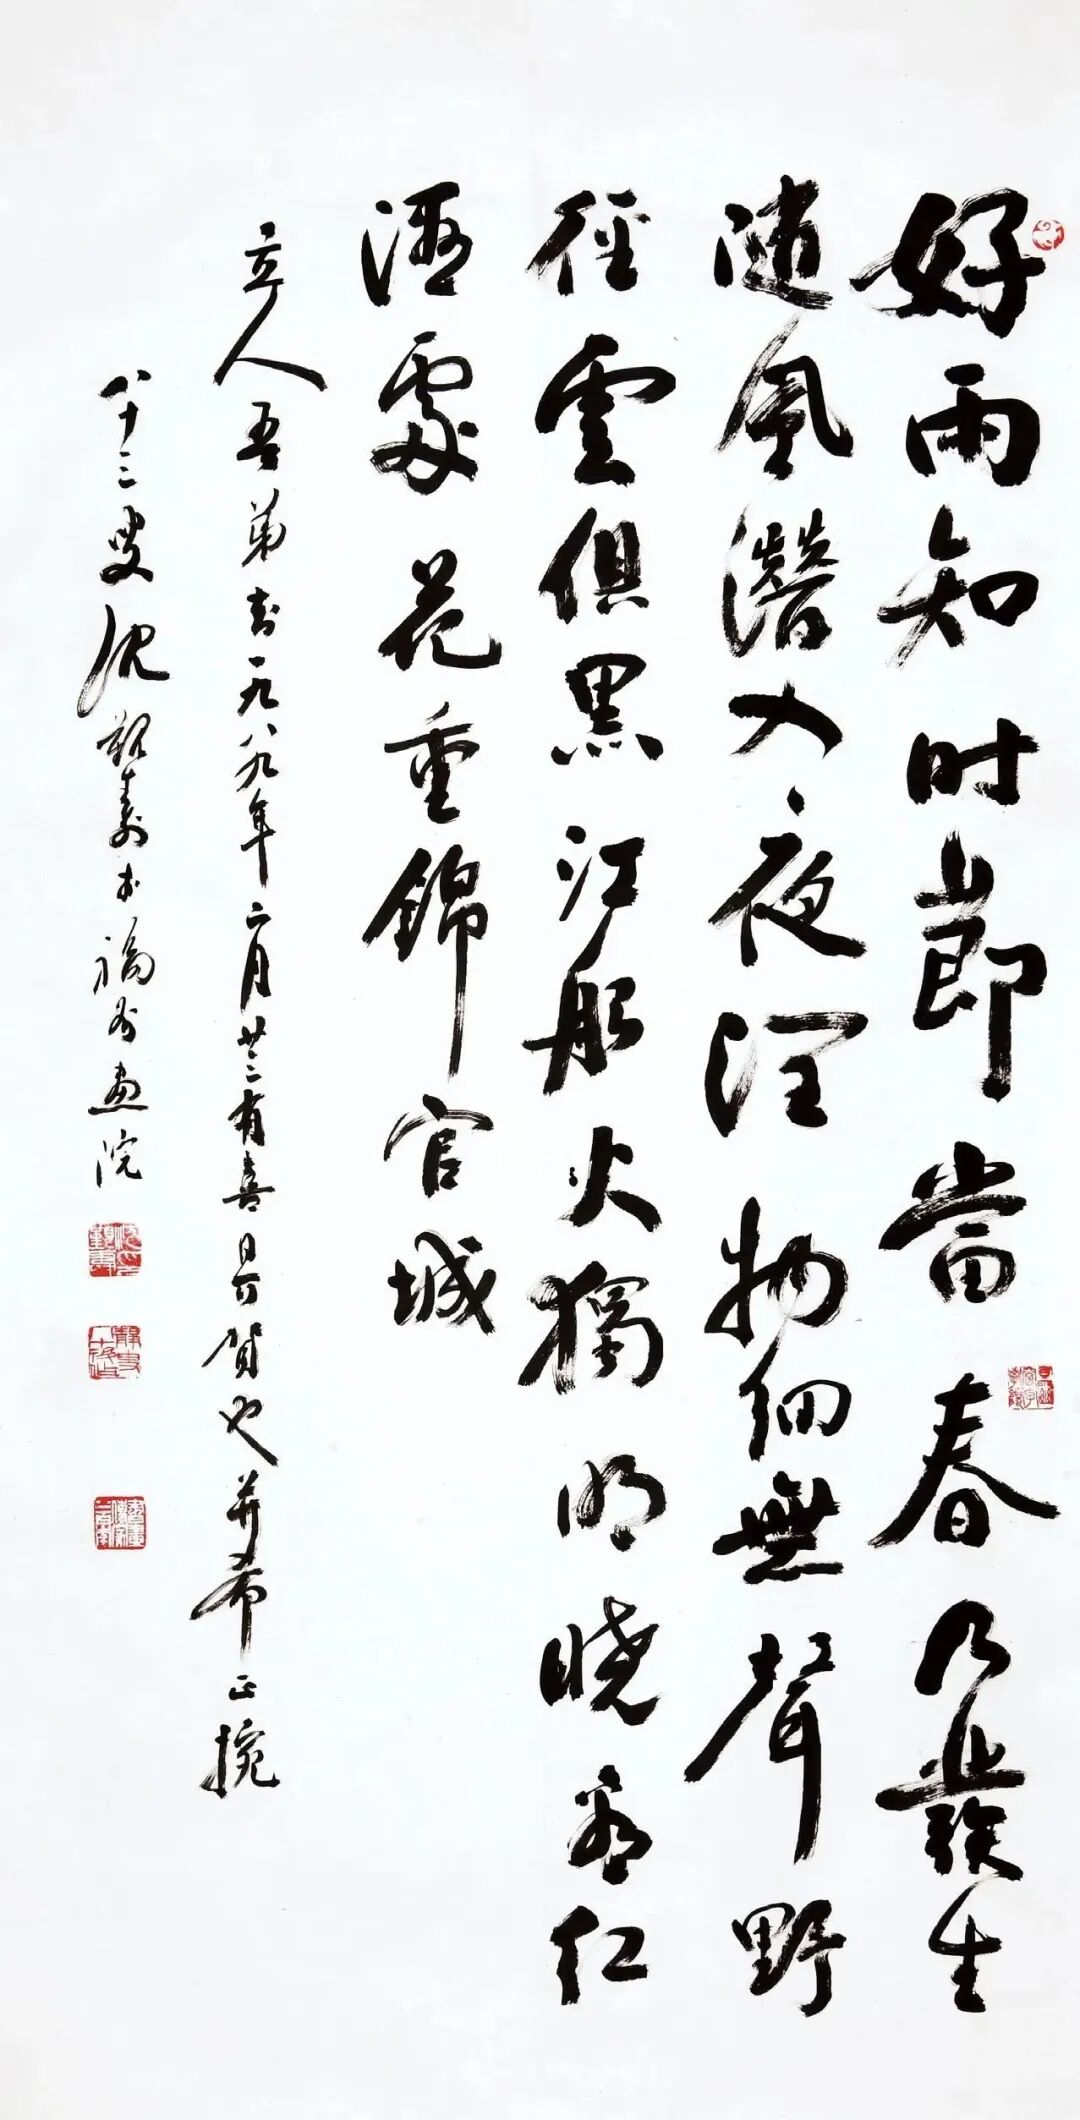 好雨知时节當春乃發生
随風潛入夜潤物細無聲野
徑雲俱黑江船火獨明曉看紅
濕處花重錦官城
立人吾弟書一九八九年二月廿三有喜是可賀也并希正掔
八十三叟沈覲壽書福州畫院